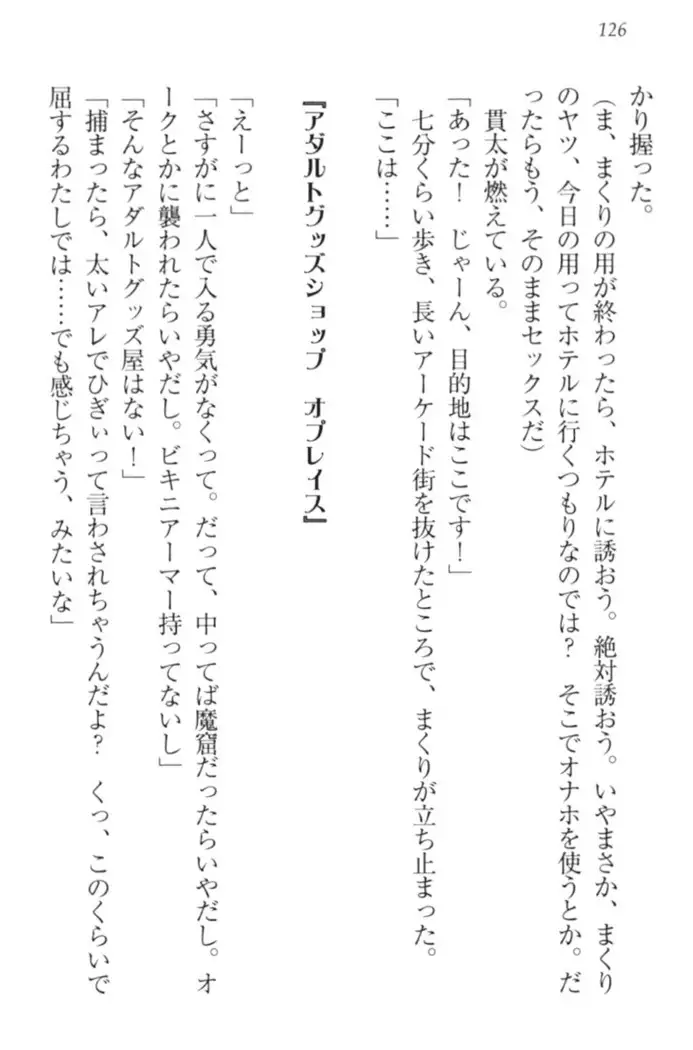 126
かり握った。
（ま、まくりの用が終わったら、ホテルに誘おう。絶対誘おう。いやまさか、まくり
のヤツ、今日の用ってホテルに行くつもりなのでは？　そこでオナホを使うとか。だ
ったらもう、そのままセックスだ）
　貫太が燃えている。
「あった！　じゃーん、目的地はここです！」
　七分くらい歩き、長いアーケード街を抜けたところで、まくりが立ち止まった。
「ここは……」
『アダルトグッズショップ　オプレイス』
「えーっと」
「さすがに一人で入る勇気がなくって。だって、中ってば魔窟だったらいやだし。オ
ークとかに襲われたらいやだし。ビキニアーマー持ってないし」
「そんなアダルトグッズ屋はない！」
「捕まったら、太いアレでひぎぃって言わされちゃうんだよ？　くっ、このくらいで
屈するわたしでは……でも感じちゃう、みたいな」